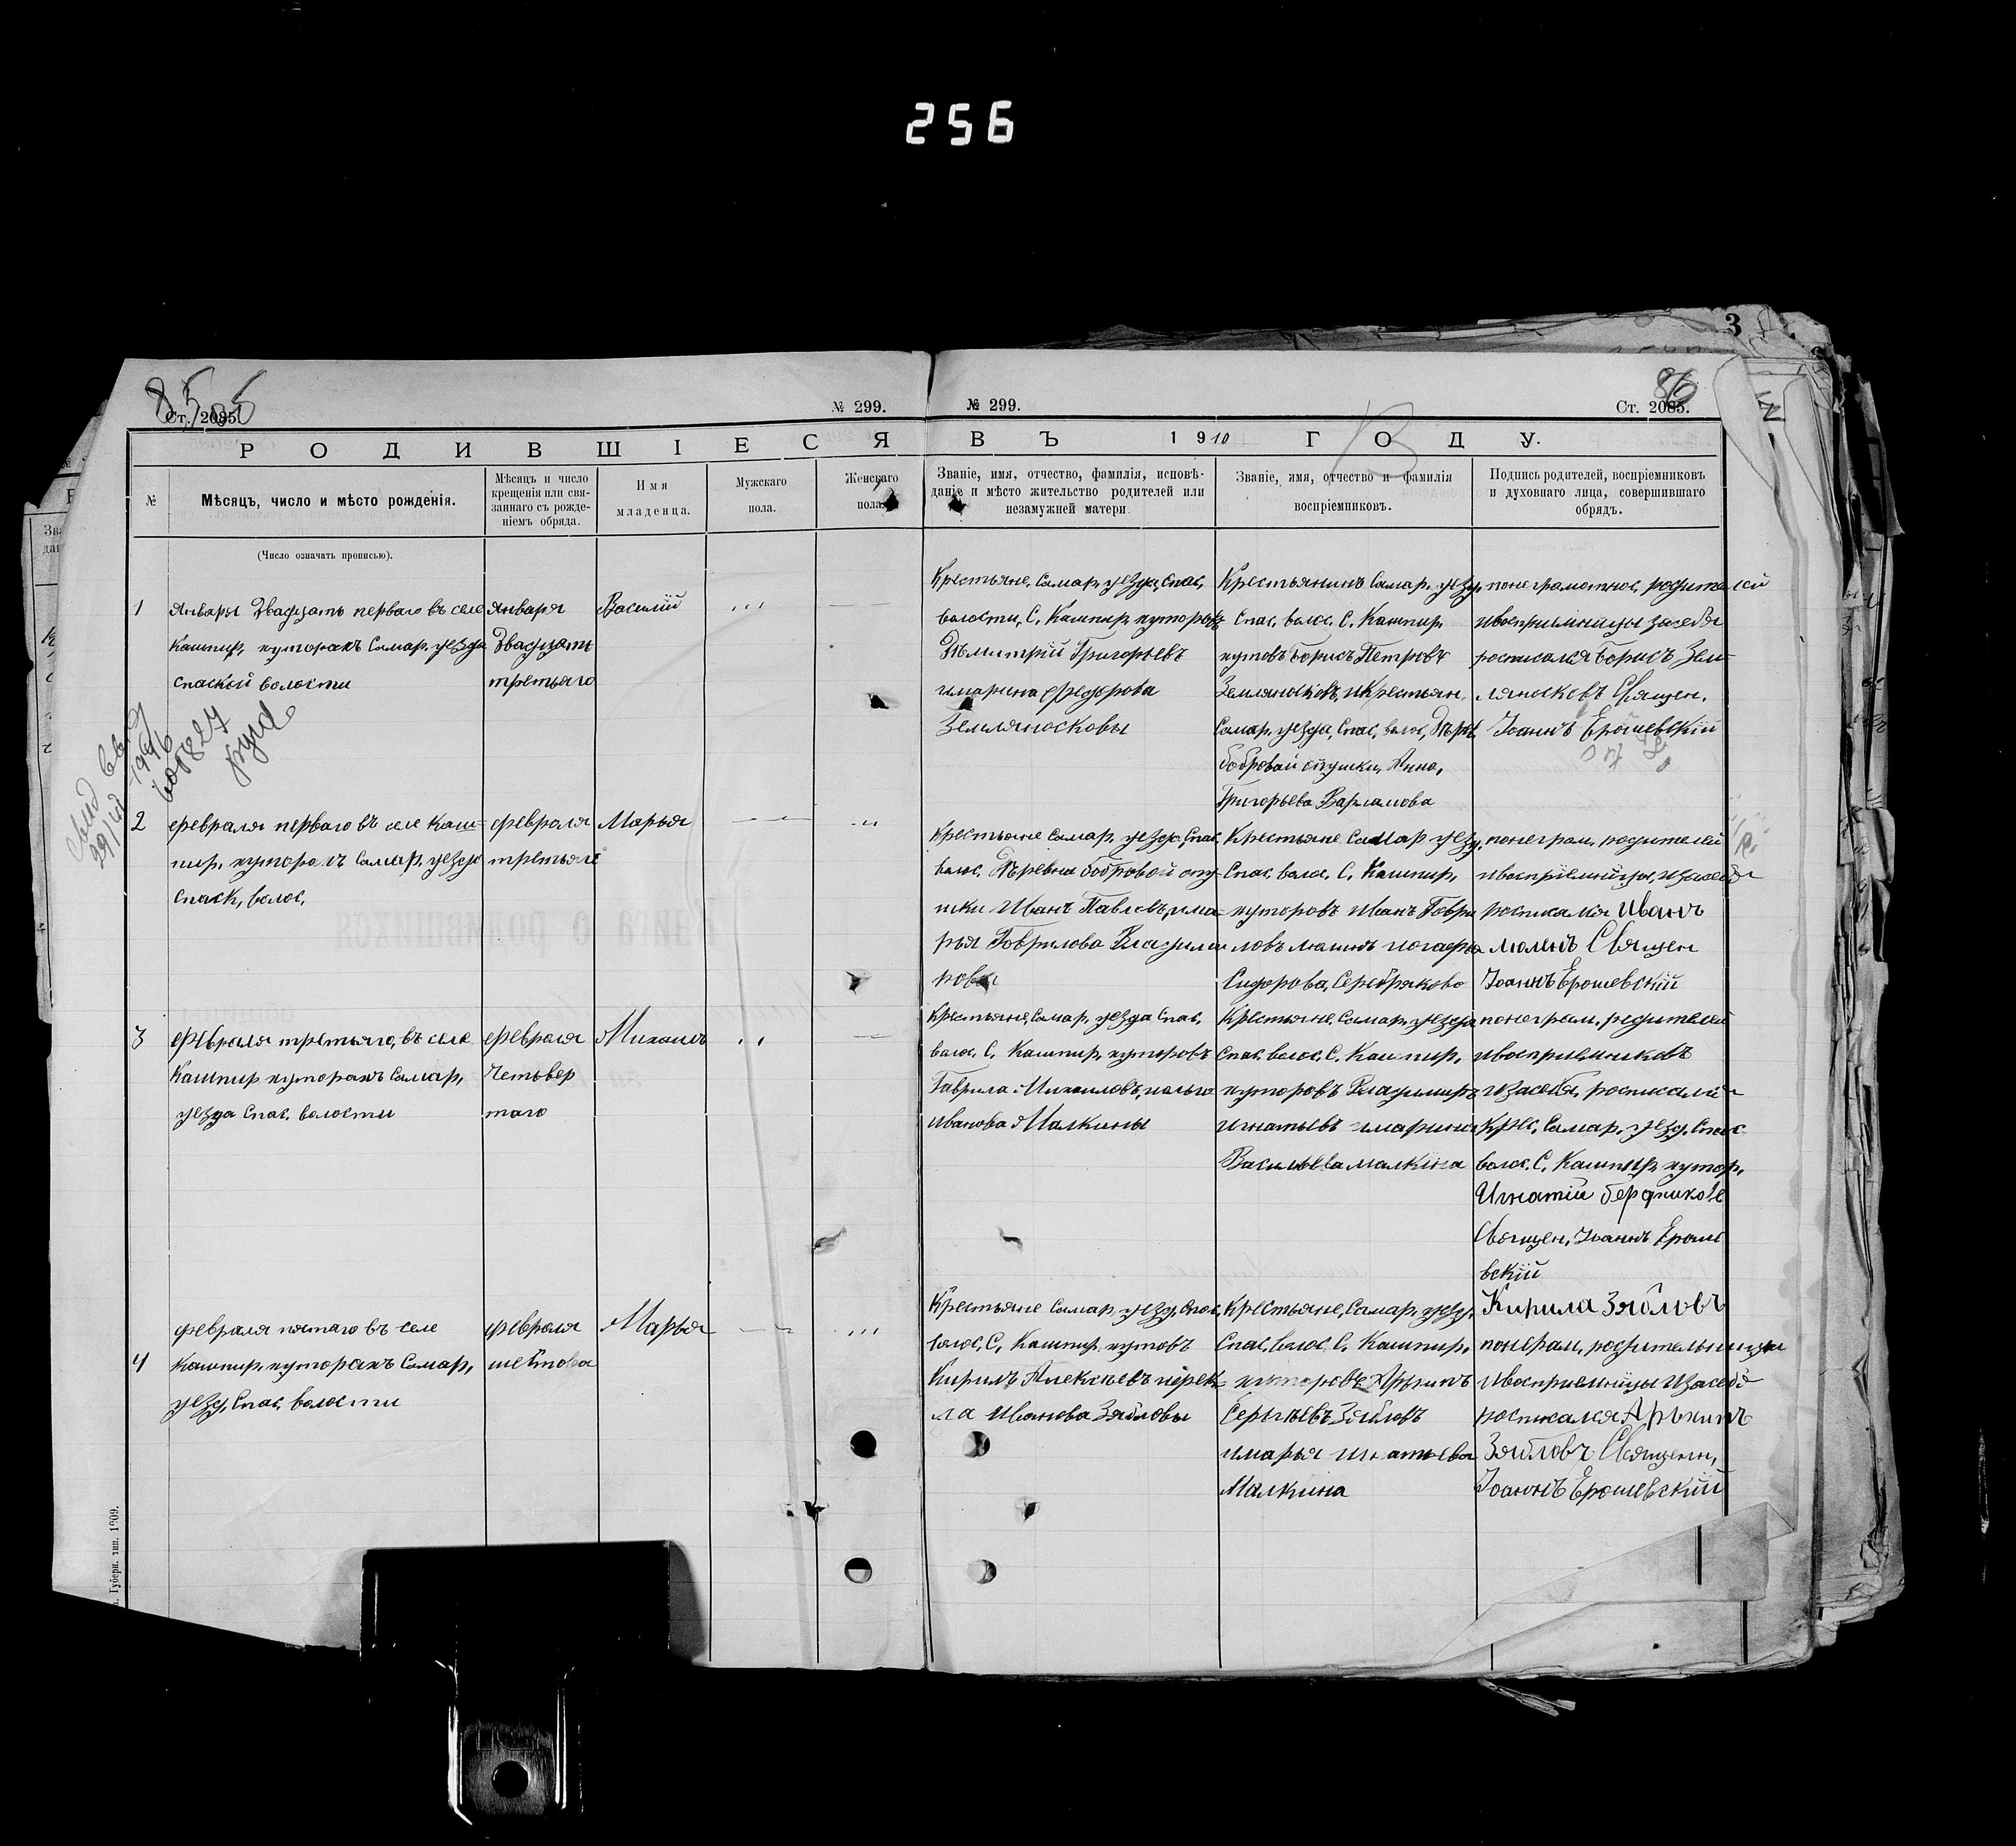 256
3
85
86
Ст. 2085.
№ 299.
№ 299.
Ст. 2085.
РОДИВШІЕСЯ ВЪ 1910 ГОДУ.
№
Мѣсяцъ, число и мѣсто рожденія.
Мѣсяцъ и число
крещенія или свя-
заннаго съ рожде-
ніемъ обряда.
Имя
младенца.
Мужскаго
пола.
Женскаго
пола.
Званіе, имя, отчество, фамилія, исповѣ-
даніе и мѣсто жительство родителей или
незамужней матери.
Званіе, имя, отчество и фамилія
воспріемниковъ.
Подпись родителей, воспріемниковъ
и духовнаго лица, совершившаго
обрядъ.
(Число означать прописью).
1
января Двадцать перваго въ селе
Кашпир, хуторахъ Самар, уезда
спаской волости
января
Двадцать
третьяго
Василій
Крестьяне, Самар, уезда, Спас,
волости, С, Кашпир, хуторовъ
Дьмитрій Григорьевъ
имарина Федорова
Земляносковы
Крестьянинъ Самар, уезд,
Спас, волос, С, Кашпир,
хутовъ Борисъ Петровъ
Земляносковъ, икрестьян
Самар, уезда, Спас, волос,
бобровай опушки, Анна,
Григорьева Варламова
понеграмотнос, родителей
ивосприимницы засебя
росписался Борисъ Земл
яносковъ Священ,
Іоаннъ Ерошевскій
2
февраля перваго въ селе Каш=
пир, хуторахъ Самар, уезда
Спаск, волос,
февраля
третьяго
Марья
Крестьяне Самар, уезда, Спас,
волос, Деревни бобровой опу
шки Иванъ Павловъ, има=
рья Гаврилова Владими
ровы
Крестьяне Самар уезд,
Спас, волос, С, Кашпир,
хуторовъ Иванъ Гаври
ловъ
Сидорова, Серебрякова
понеграм, родителей
ивоспріемницы, изасебя
росписался Иванъ
Священ
Іоаннъ Ерошевскій
3
Февраля третьяго, въ селе
Кашпир хуторахъ Самар,
уезда Спас, волости
февраля
Четьвер
таго
Михаилъ
Крестьяне, Самар, уезда Спас,
волос, С, Кашпир, хуторовъ
Гаврила Михаиловъ, иольга
Иванова Малкины
Крестьяне, Самар, уезда
Спас, волос, С, Кашпир,
хуторовъ Владимиръ
Игнатьевъ имарина
Васильева малкина
понеграм, родителей
ивосприемниковъ
изасебя, росписался
Крес, Самар, уезд, Спас
волос, С, Кашпир, хутор,
Игнатій бердниковъ
Священ, Іоаннъ Ероше
вскій
4
февраля пятаго въ селе
Кашпир, хуторахъ Самар,
уезд, Спас, волости
февраля
шестова
Марья
Крестьяне Самар, уезд, Спас,
волос, С, Кашпир, хутовъ
Кирилъ Алексеевъ
ла Иванова Зябловы
Крестьяне, Самар, уезд,
Спас, волос, С, Кашпир,
хуторовъ Архипъ
Сергѣевъ Зябловъ
имарья Игнатьева
Малкина
Кирила Зябловъ
понеграм, родительницы
ивосприемницы изасебя
росписался Архипъ
Зябловъ Священн,
Іоаннъ Ерошевскій
Губерн. тип. 1909.